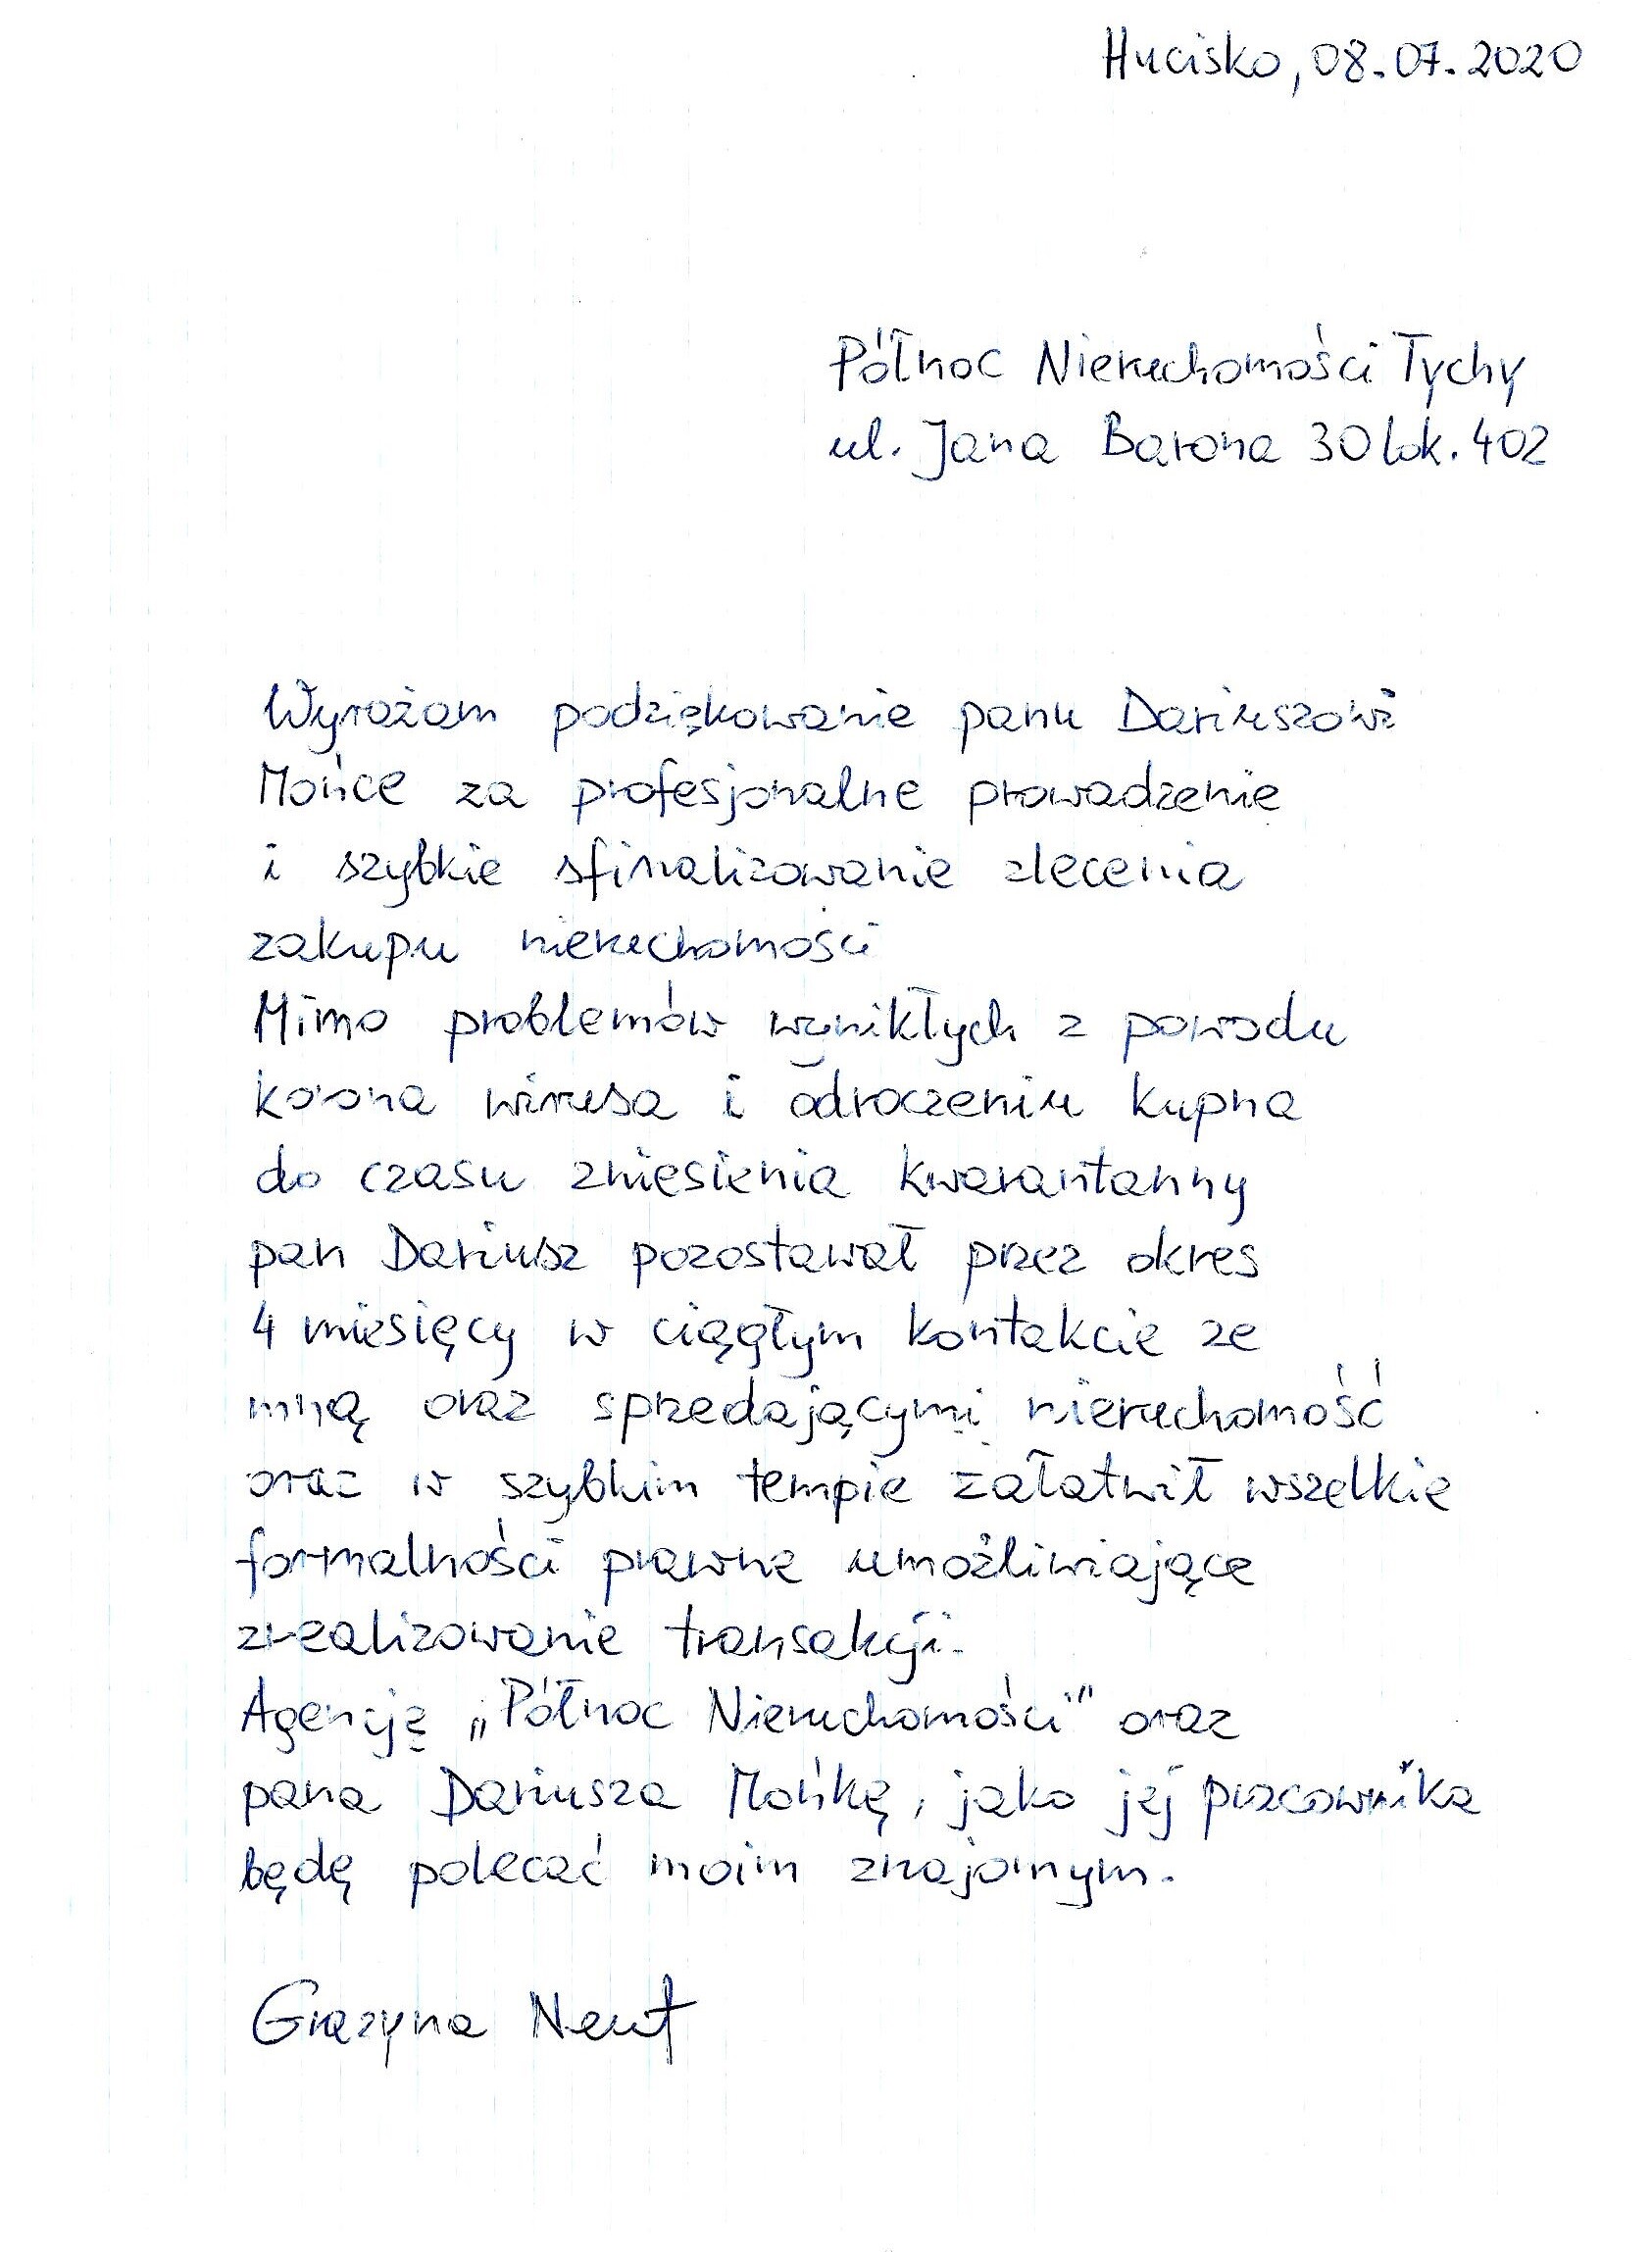 Hucisko, 08.07.2020
Północ Nieruchomości Tychy
ul. Jana Barona 30 lok. 402
Wyrażam podziękowanie panu Dariuszowi
Mońce za profesjonalne prowadzenie
i szybkie sfinalizowanie zlecenia
zakupu nieruchomości
Mimo problemów wynikłych z powodu
korona wirusa i odroczeniu kupna
do czasu zniesienia kwarantanny
pan Dariusz pozostawał przez okres
4 miesięcy w ciągłym kontakcie ze
mną oraz sprzedającymi nieruchomość
oraz w szybkim tempie załatwił wszelkie
formalności prawne umożliwiające
zrealizowanie transakcji.
Agencję „Północ Nieruchomości” oraz
pana Dariusza Mońkę, jako jej pracownika
będę polecać moim znajomym.
Grażyna